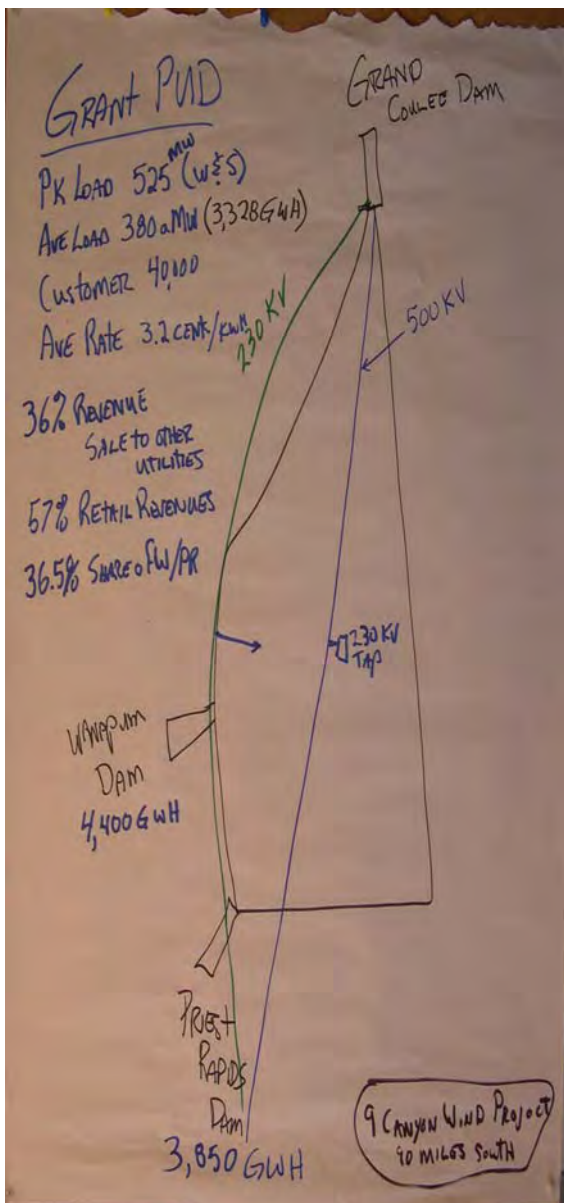 GRANT PUD
PK LOAD 525 MW (W&S)
AVE LOAD 380aMW (3,328 GWH)
CUSTOMER 40,000
AVE RATE 3.2 CENT/KWH
36% REVENUE
SALE TO OTHER
UTILITIES
57% RETAIL REVENUES
36.5% SHARE OF W/PR
GRAND
COULEE DAM
230 KV
500 KV
230 KV
TAP
WANAPUM
DAM
4,400 GWH
PRIEST
RAPIDS
DAM
3,850 GWH
9 CANYON WIND PROJECT
90 MILES SOUTH